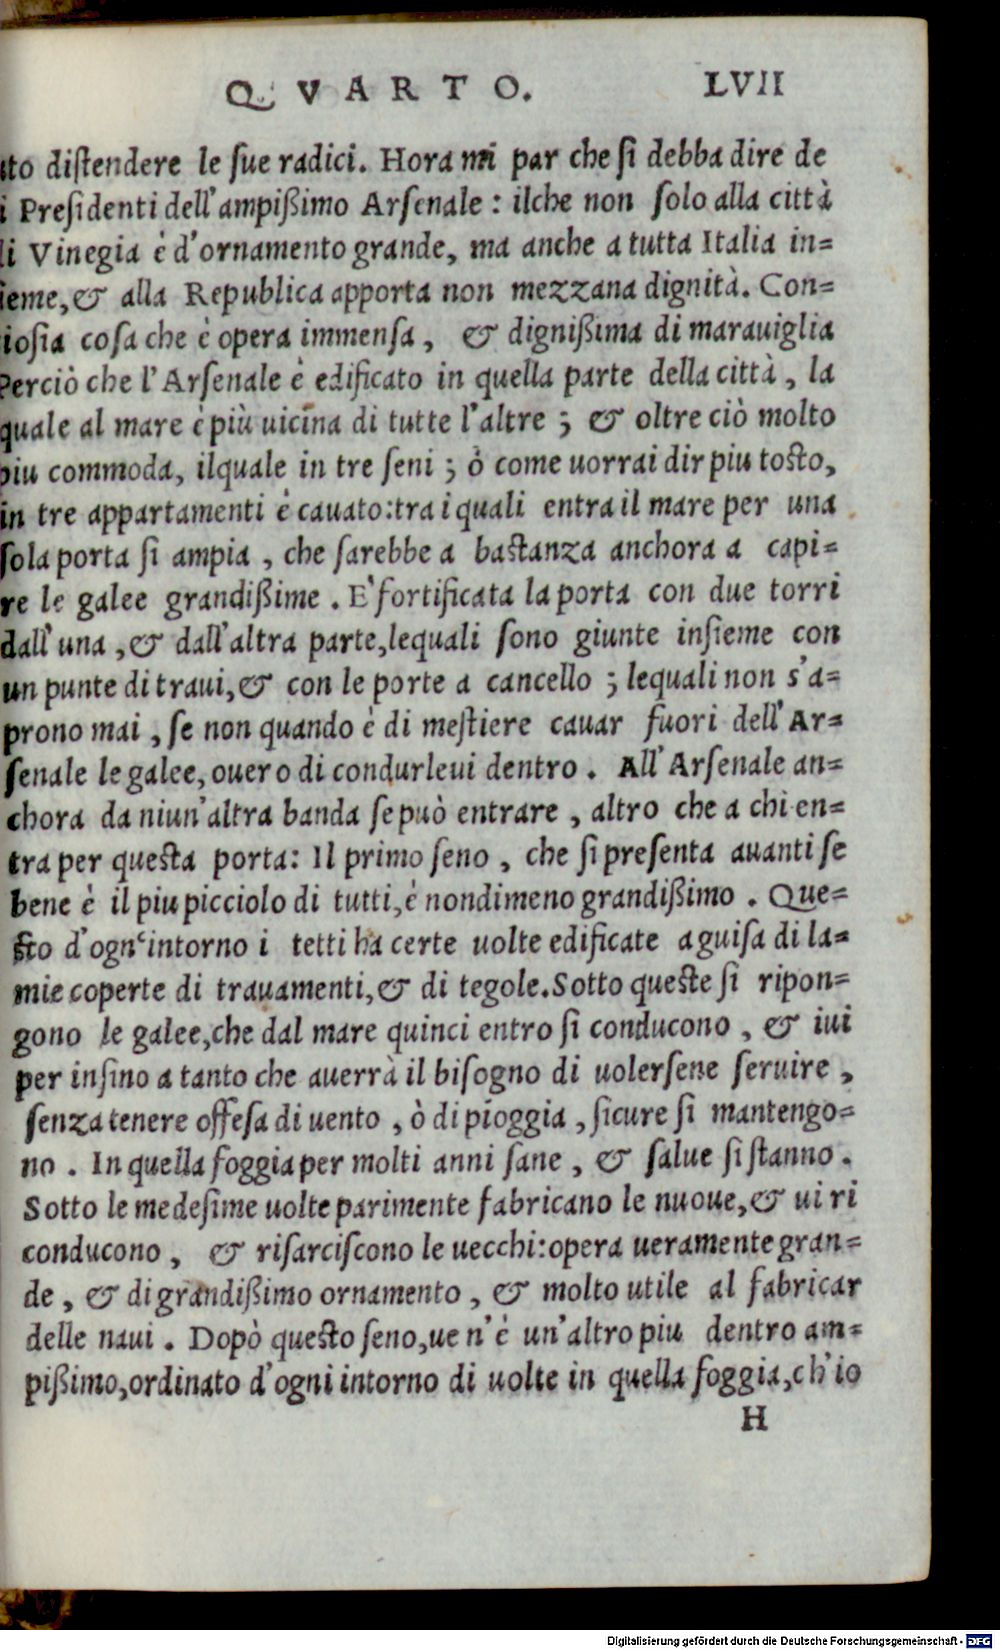 QVARTO. LVII
ito diſtendere le ſue radici. Hora mi par che ſi debba dire de
i Preſidenti dell'ampißimo Arſenale: ilche non ſolo alla città
di Vinegia è d'ornamento grande, ma anche a tutta Italia in=
ſieme, & alla Republica apporta non mezzana dignità. Con=
ioſia coſa che è opera immenſa, & dignißima di marauiglia
Perciò che l'Arſenale è edificato in quella parte della città, la
quale al mare è più uicina di tutte l'altre; & oltre ciò molto
piu commoda, ilquale in tre ſeni; ò come uorrai dir piu toſto,
in tre appartamenti è cauato: tra i quali entra il mare per una
ſola porta ſi ampia, che ſarebbe a baſtanza anchora a capi=
re le galee grandißime. E' fortificata la porta con due torri
dall'una, & dall'altra parte, lequali ſono giunte inſieme con
un punte di traui, & con le porte a cancello; lequali non s'a=
prono mai, ſe non quando è di meſtiere cauar fuori dell'Ar=
ſenale le galee, ouero di condurleui dentro. All'Arſenale an=
chora da niun'altra banda ſe può entrare, altro che a chi en=
tra per queſta porta: Il primo ſeno, che ſi preſenta auanti ſe
bene è il piu picciolo di tutti, è nondimeno grandißimo. Que=
ſto d'ogn'intorno i tetti ha certe uolte edificate a guiſa di la=
mie coperte di trauamenti, & di tegole. Sotto queſte ſi ripon=
gono le galee, che dal mare quinci entro ſi conducono, & iui
per inſino a tanto che auerrà il biſogno di uolerſene ſeruire,
ſenza tenere offeſa di uento, ò di pioggia, ſicure ſi mantengo=
no. In quella foggia per molti anni ſane, & ſalue ſi ſtanno.
Sotto le medeſime uolte parimente fabricano le nuoue, & ui ri
conducono, & riſarciſcono le uecchi: opera ueramente gran=
de, & di grandißimo ornamento, & molto utile al fabricar
delle naui. Dopò queſto ſeno, ue n'è un'altro piu dentro am=
pißimo, ordinato d'ogni intorno di uolte in quella foggia, ch'io
H
Digitalisierung gefördert durch die Deutsche Forschungsgemeinschaft - DFG